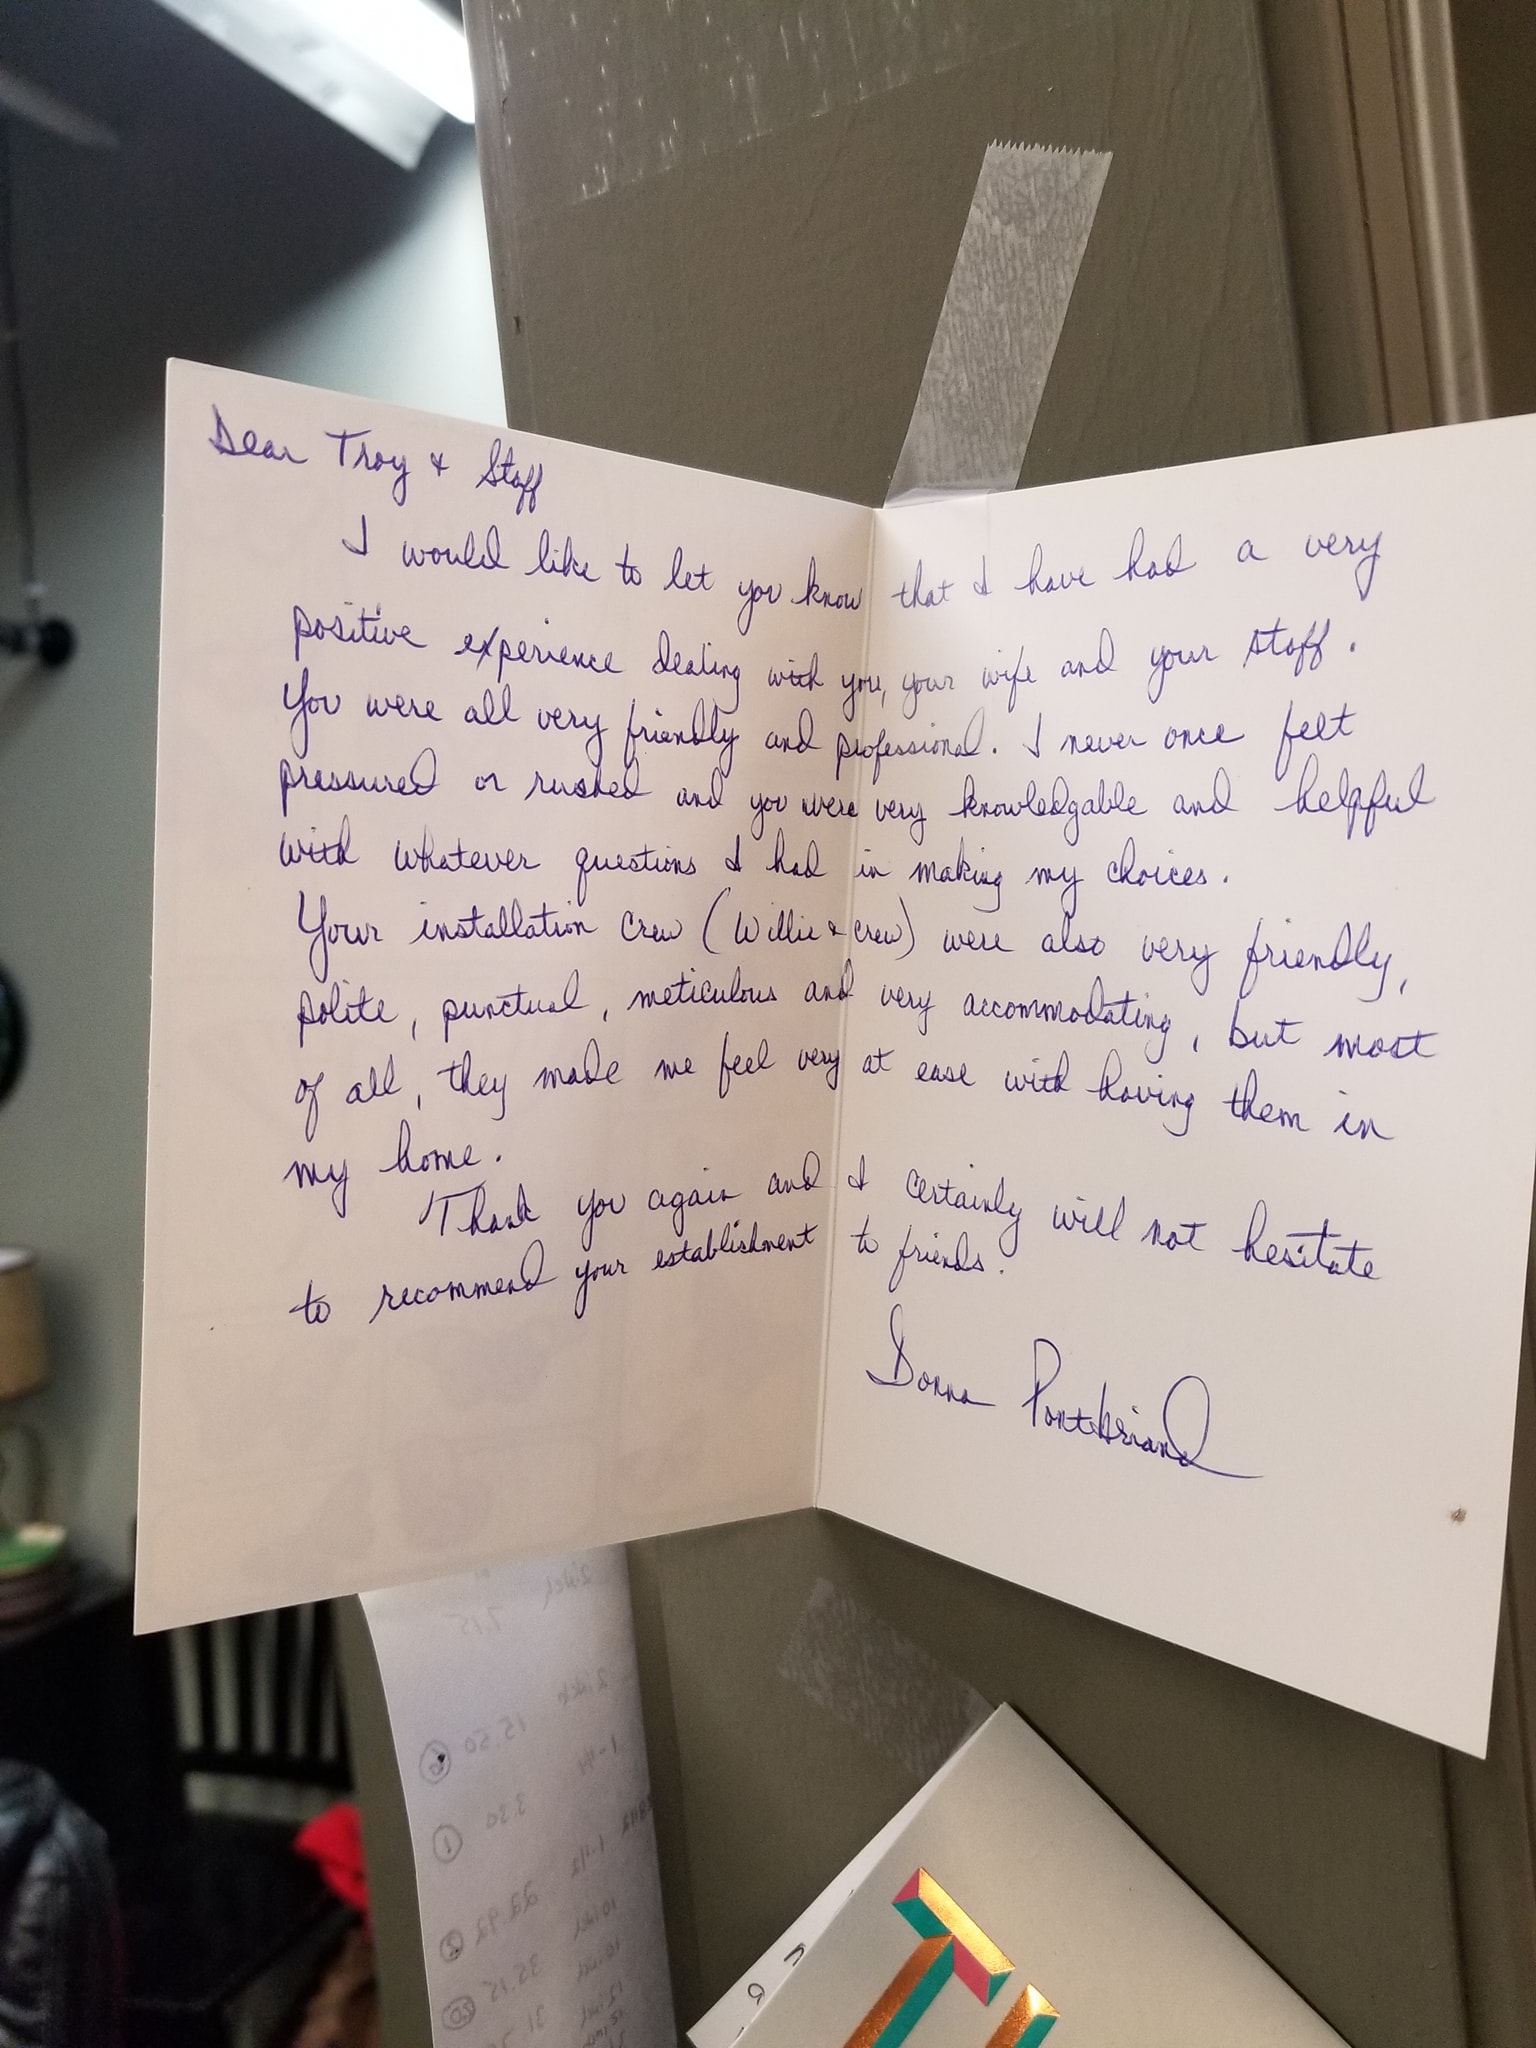 Dear Troy & Staff
I would like to let you know that I have had a very
positive experience dealing with you, your wife and your staff.
You were all very friendly and professional. I never once felt
pressured or rushed and you were very knowledgable and helpful
with whatever questions I had in making my choices.
Your installation crew (Willie & crew) were also very friendly,
polite, punctual, meticulous and very accommodating, but most
of all, they made me feel very at ease with having them in
my home.
Thank you again and I certainly will not hesitate
to recommend your establishment to friends.
Donna Pontbriand
215
15.50
3.30
35.15